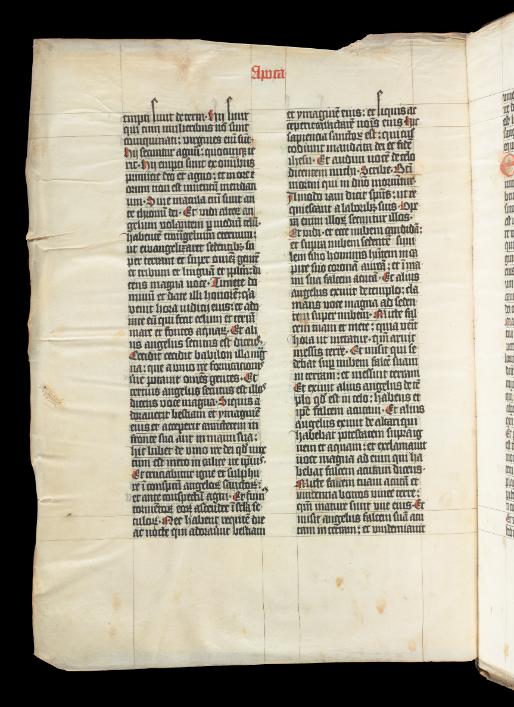 Apoca
empti sunt de terra. Hij sunt
qui cum mulieribus nō sunt
coinquinati: virgines em̄ sūt.
Hij secuntur agnū: quocunq; ie
rit. Hij empti sunt ex omnibus
primitie deo et agno: et in ore ip
orum non est inuentū mendaci
um. Sine macula em̄ sunt an
te thronū dei. Et vidi alterū an
gelum volantem p mediū celū
habentē ewangelium eternum:
ut ewangelizaret sedentibȝ su
per terram et super omnē gentē
et tribum et linguā et ipplm̄: di
cens magna voce. Timete do
minū et date illi honorē: q̄a
venit hora iudicij eius: et ado
rate eū qui fecit celum et terrā
mare et fontes aquaꝝ. Et ali
us angelus secutus est dicens.
Cecidit cecidit babilon illa mag
na: que a vino ire fornicationis
sue potauit omēs gentes. Et
tercius angelus secutus est illos
dicens voce magna. Si quis a
dorauerit bestiam et ymaginē
eius et acceperit caracterem in
fronte sua aut in manu sua:
hic bibet de vino ire dei qd̄ mix
tum est mero in calice ire ipiꝰ.
Et cruciabitur igne et sulphu
re ī conspectu angeloꝝ sanctoꝝ:
et ante conspectū agni. Et fum
tormentoꝝ eoꝝ ascendet ī secla se
culoꝝ. Nec habent requiē die
ac nocte qui adorauit bestiam
et ymaginē eius: et si quis ac
ceperit caracterē nois eius. Hic
sapientia sanctoꝝ est: qui cus
todiunt mandata dei et fidē
ihesu. Et audiui vocē de celo
dicentem michi. Scribe. Bti
mortui qui in dno moriunt.
Amodo iam dicit spūs: ut re
quiescant a laboribȝ suis. Ope
ra enim illoꝝ secuntur illos.
Et vidi. et ecce nubem candidā:
et supra nubem sedentē simi
lem filio hominis habentē in ca
pite suo coronā aureā: et ī ma
nu sua falcem acutā. Et alius
angelus exiuit de templo: cla
mans voce magna ad seden
tem super nubem. Mitte fal
cem tuam et mete: quia venit
hora ut metatur. qm̄ aruit
messis terre. Et misit qui se
debat sup nubem falcē suam
in terram: et messuit terram.
Et exiuit alius angelus de tē
plo qd̄ est in celo: habens et
ipē falcem acutam. Et alius
angelus exiuit de altari qui
habebat potestatem supra ig
nem et aquam: et exclamauit
voce magna ad eum qui ha
bebat falcem acutam dicens.
Mitte falcem tuam acutā et
vindemia botros vinee terre:
qm̄ mature sunt vue eius. Et
misit angelus falcem suā acu
tam in terram: et vindemiauit